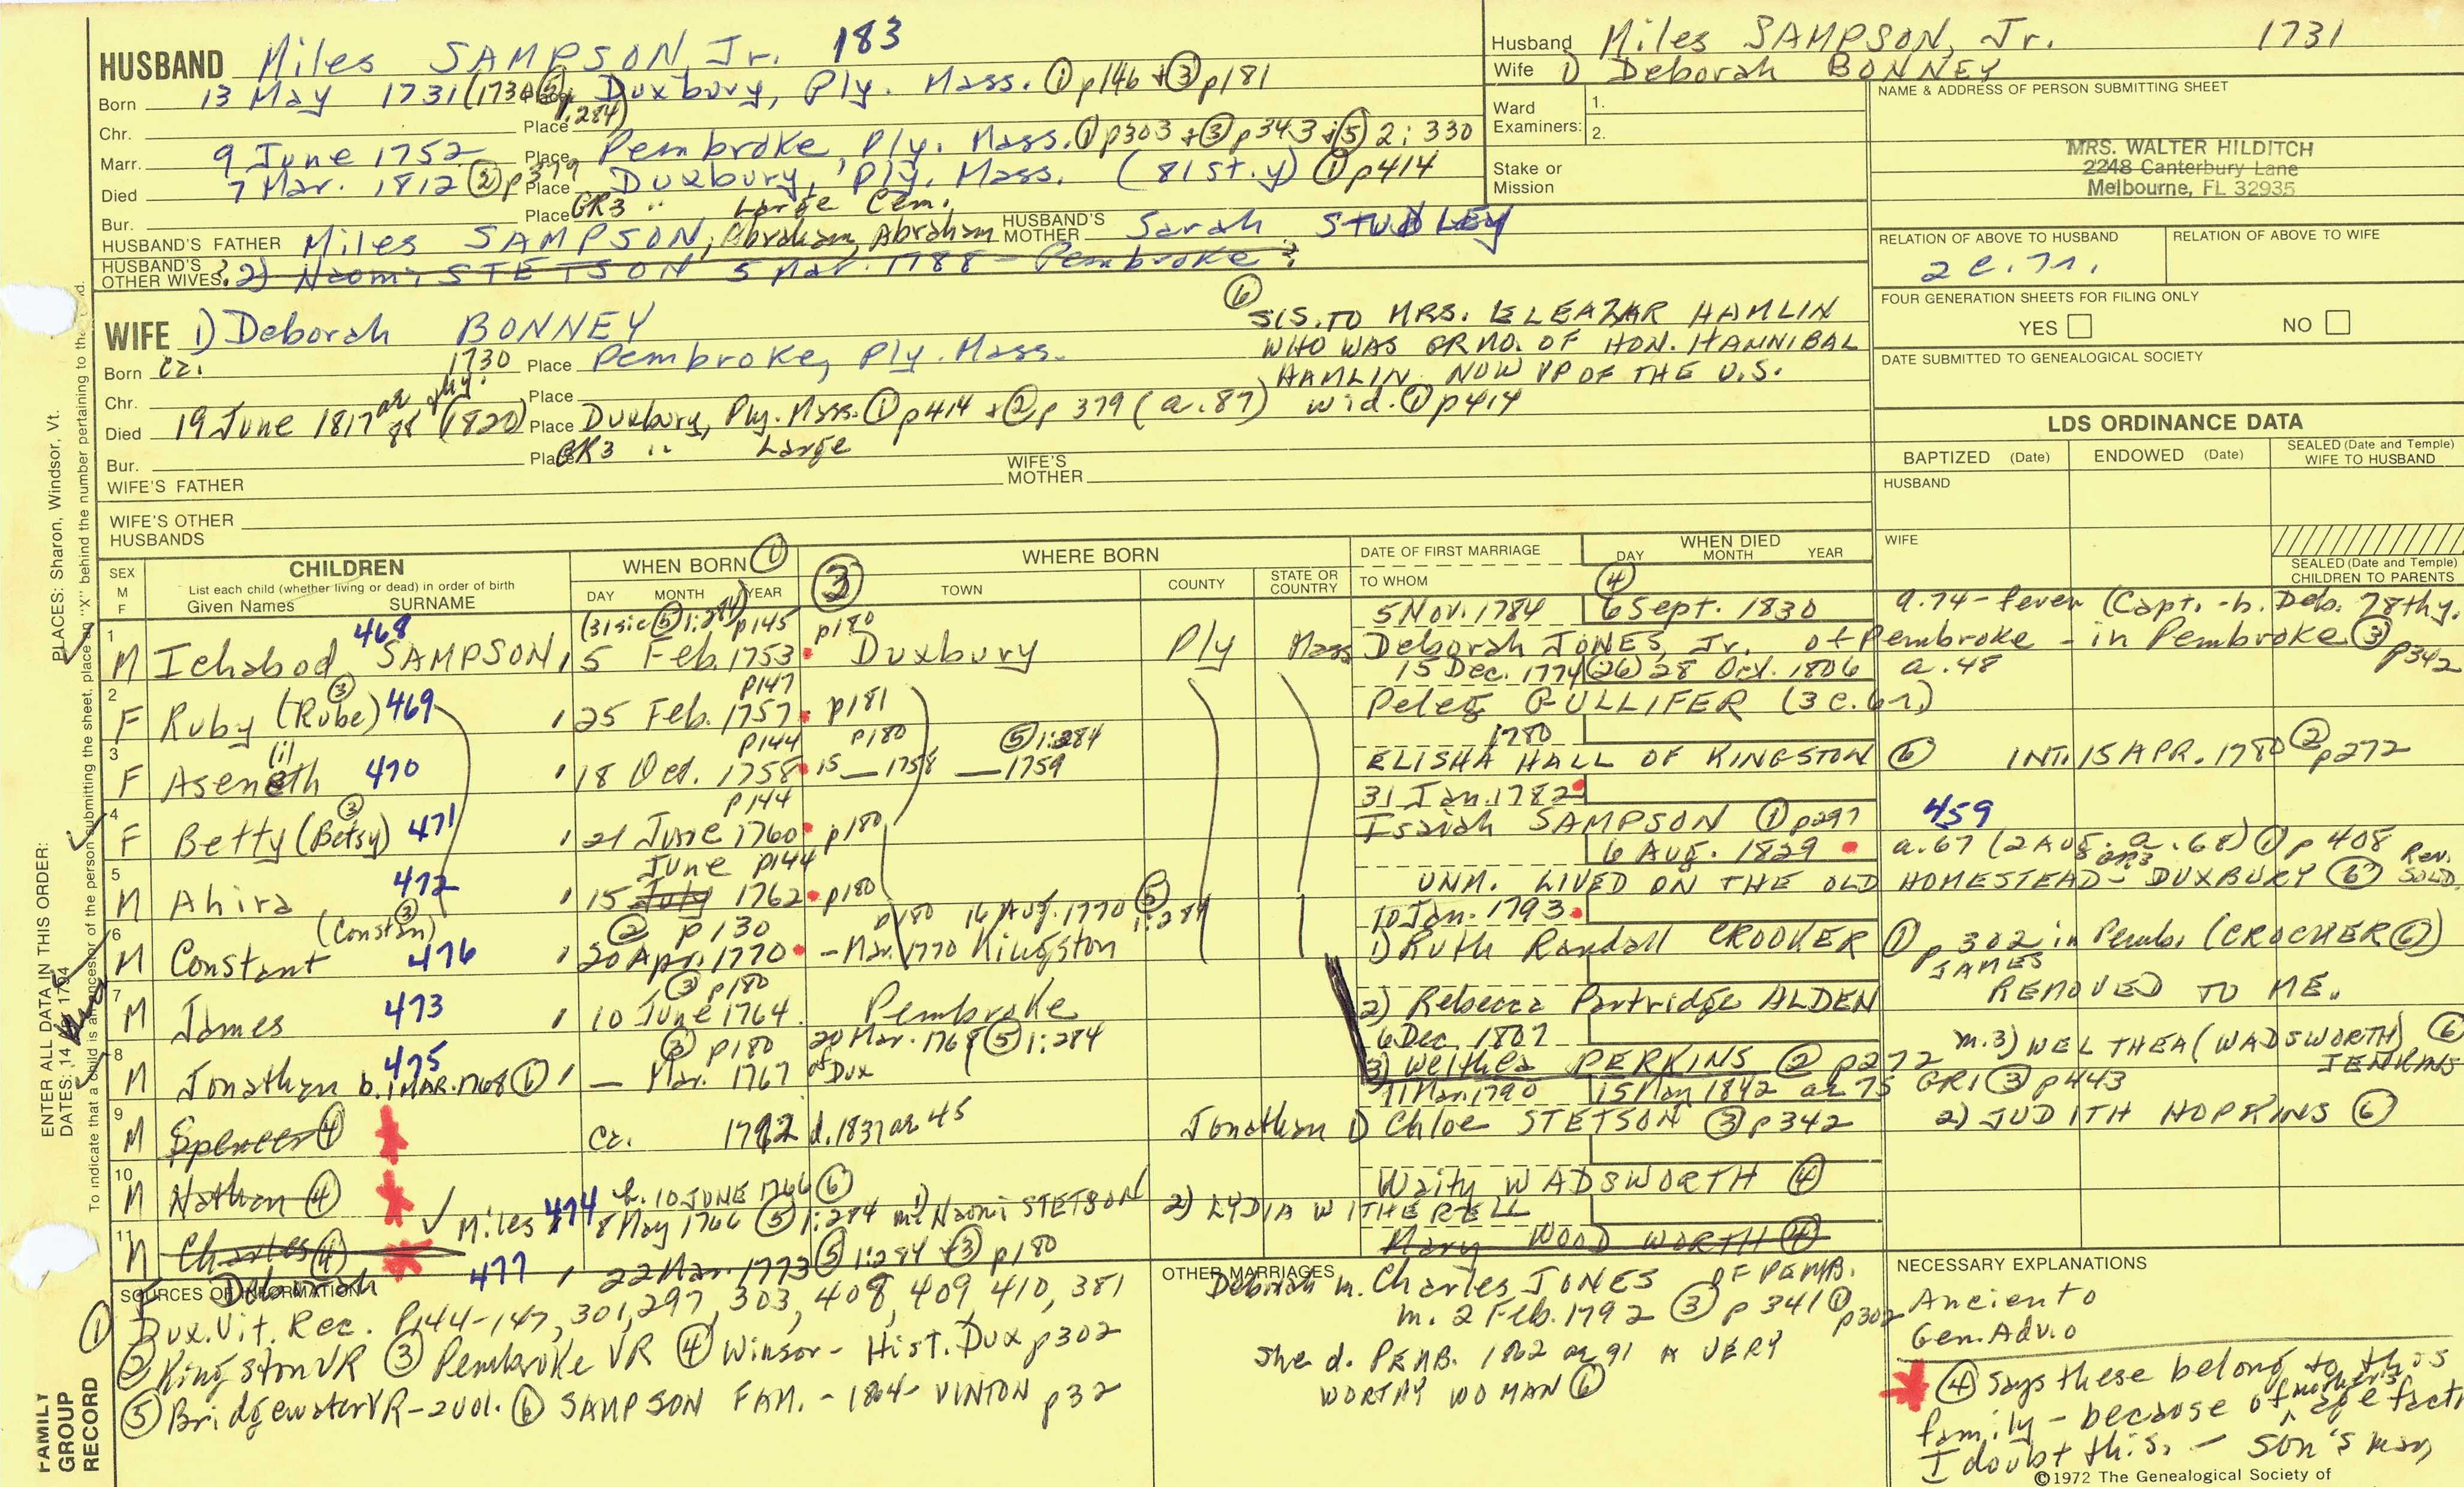 HUSBAND Miles SAMPSON, Jr. 183
Born 13 May 1731 (1730 ⑤ p.284) Place Duxbury, Ply. Mass. ① p146 + ③ p181
Chr. Place
Marr. 9 June 1752 Place Pembroke, Ply. Mass. ① p303 + ③ p343 + ⑤ 2: 330
Died 7 Mar. 1812 ② p379 Place Duxbury, Ply. Mass. (81st.y) ① p414
Bur. Place GR3 " Large Cem.
HUSBAND'S FATHER Miles SAMPSON, Abraham, Abraham HUSBAND'S MOTHER Sarah STUDLEY
HUSBAND'S OTHER WIVES ? 2) Naomi STETSON 5 Mar. 1788 - Pembroke ?
Husband Miles SAMPSON, Jr. 1731
Wife 1) Deborah BONNEY
Ward Examiners: 1.
2.
Stake or Mission
NAME & ADDRESS OF PERSON SUBMITTING SHEET
MRS. WALTER HILDITCH
2248 Canterbury Lane
Melbourne, FL 32935
RELATION OF ABOVE TO HUSBAND
2 c. 7r.
RELATION OF ABOVE TO WIFE
FOUR GENERATION SHEETS FOR FILING ONLY
YES NO
DATE SUBMITTED TO GENEALOGICAL SOCIETY
WIFE 1) Deborah BONNEY
Born Ca. 1730 Place Pembroke, Ply. Mass.
⑥ SIS. TO MRS. ELEAZAR HAMLIN
WHO WAS GR MO. OF HON. HANNIBAL
HAMLIN NOW VP OF THE U.S.
Chr. Place
Died 19 June 1817 (1820) Place Duxbury, Ply. Mass. ① p414 + ② p 379 (a. 87) wid. ① p414
Bur. Place GR3 " Large
WIFE'S FATHER WIFE'S MOTHER
WIFE'S OTHER HUSBANDS
LDS ORDINANCE DATA
BAPTIZED (Date) ENDOWED (Date) SEALED (Date and Temple) WIFE TO HUSBAND
HUSBAND
WIFE
SEALED (Date and Temple) CHILDREN TO PARENTS
SEX M F
CHILDREN
List each child (whether living or dead) in order of birth
Given Names SURNAME
WHEN BORN ①
DAY MONTH YEAR
③ WHERE BORN
TOWN COUNTY STATE OR COUNTRY
DATE OF FIRST MARRIAGE
TO WHOM
WHEN DIED
DAY MONTH YEAR ④
(31 sic ⑤ 1:284) p145 p180 5 Nov. 1784 6 Sept. 1830 a.74 - fever (Capt. - h. Deb. 78thy.
1 M Ichabod 468 SAMPSON 5 Feb. 1753 Duxbury Ply Mass Deborah JONES, Jr. of Pembroke - in Pembroke ③ p342
p147 15 Dec. 1774 (26) 28 Oct. 1806 a. 48
2 F Ruby (Rube) ③ 469 25 Feb. 1757 p181 Peleg GULLIFER (3 c. 6r.)
p144 p180 ⑤ 1:284 1780
3 F Aseneth (il) 470 18 Oct. 1758 15 — 1758 — 1759 ELISHA HALL OF KINGSTON ⑥ INT. 15 APR. 1780 ② p272
p144 31 Jan. 1782
4 F Betty (Betsy) ③ 471 21 June 1760 p180 Isaiah SAMPSON ① p297 459
June p144 6 Aug. 1829 a.67 (2 Aug. a. 68) ① p 408 Rev. SOLD.
5 M Ahira 472 15 July 1762 p180 UNM. LIVED ON THE OLD HOMESTEAD - DUXBURY ⑥
(Constan) ③ ② p130 p180 16 Aug. 1770 ⑤ 1:284 10 Jan. 1793
6 M Constant 476 20 Apr. 1770 - Mar. 1770 Kingston 1) Ruth Randall CROOKER ① p 302 in Pemb. (CROCKER ⑥)
③ p180 JAMES REMOVED TO ME.
7 M James 473 10 June 1764 Pembroke 2) Rebecca Partridge ALDEN
6 Dec. 1807
③ p180 20 Mar. 1768 ⑤ 1:284 3) Welthea PERKINS ② p272 m. 3) WELTHEA (WADSWORTH) JENKINS ⑥
8 M Jonathan 475 b. 1 MAR. 1768 ⑥ — Mar. 1767 of Dux 11 Mar. 1790 15 May 1842 ae 75 GR1 ③ p443
Jonathan 1) Chloe STETSON ③ p342 2) JUDITH HOPKINS ⑥
9 M Spencer ④ Ca. 1792 d. 1837 ae 45
10 M Nathan ④ Waity WADSWORTH ④
✓ Miles 474 b. 10 JUNE 1766 ⑥
8 May 1766 ⑤ 1:284 m. 1) Naomi STETSON 2) LYDIA WITHERELL
11 M Charles ④ Mary WOODWORTH ④
F Deborah 477 22 Mar. 1773 ⑤ 1:284 + ③ p180
SOURCES OF INFORMATION
① Dux. Vit. Rec. P144-147, 301, 297, 303, 408, 409 410, 381
② Kingston VR ③ Pembroke VR ④ Winsor - Hist. Dux p302
⑤ Bridgewater VR - 2 vol. ⑥ SAMPSON FAM. - 1864 - VINTON p32
OTHER MARRIAGES
Deborah m. Charles JONES OF PEMB.
m. 2 Feb. 1792 ③ p 341 ① p302
She d. PEMB. 1862 ae 91 A VERY
WORTHY WOMAN ⑥
NECESSARY EXPLANATIONS
Ancient o
Gen. Adv. o
④ Says these belong to this
family - because of mother's age fact
I doubt this. - son's may
©1972 The Genealogical Society of
ENTER ALL DATA IN THIS ORDER:
DATES: 14 1794
PLACES: Sharon, Windsor, Vt.
To indicate that a child is an ancestor of the person submitting the sheet, place an "X" behind the number pertaining to that
FAMILY GROUP RECORD